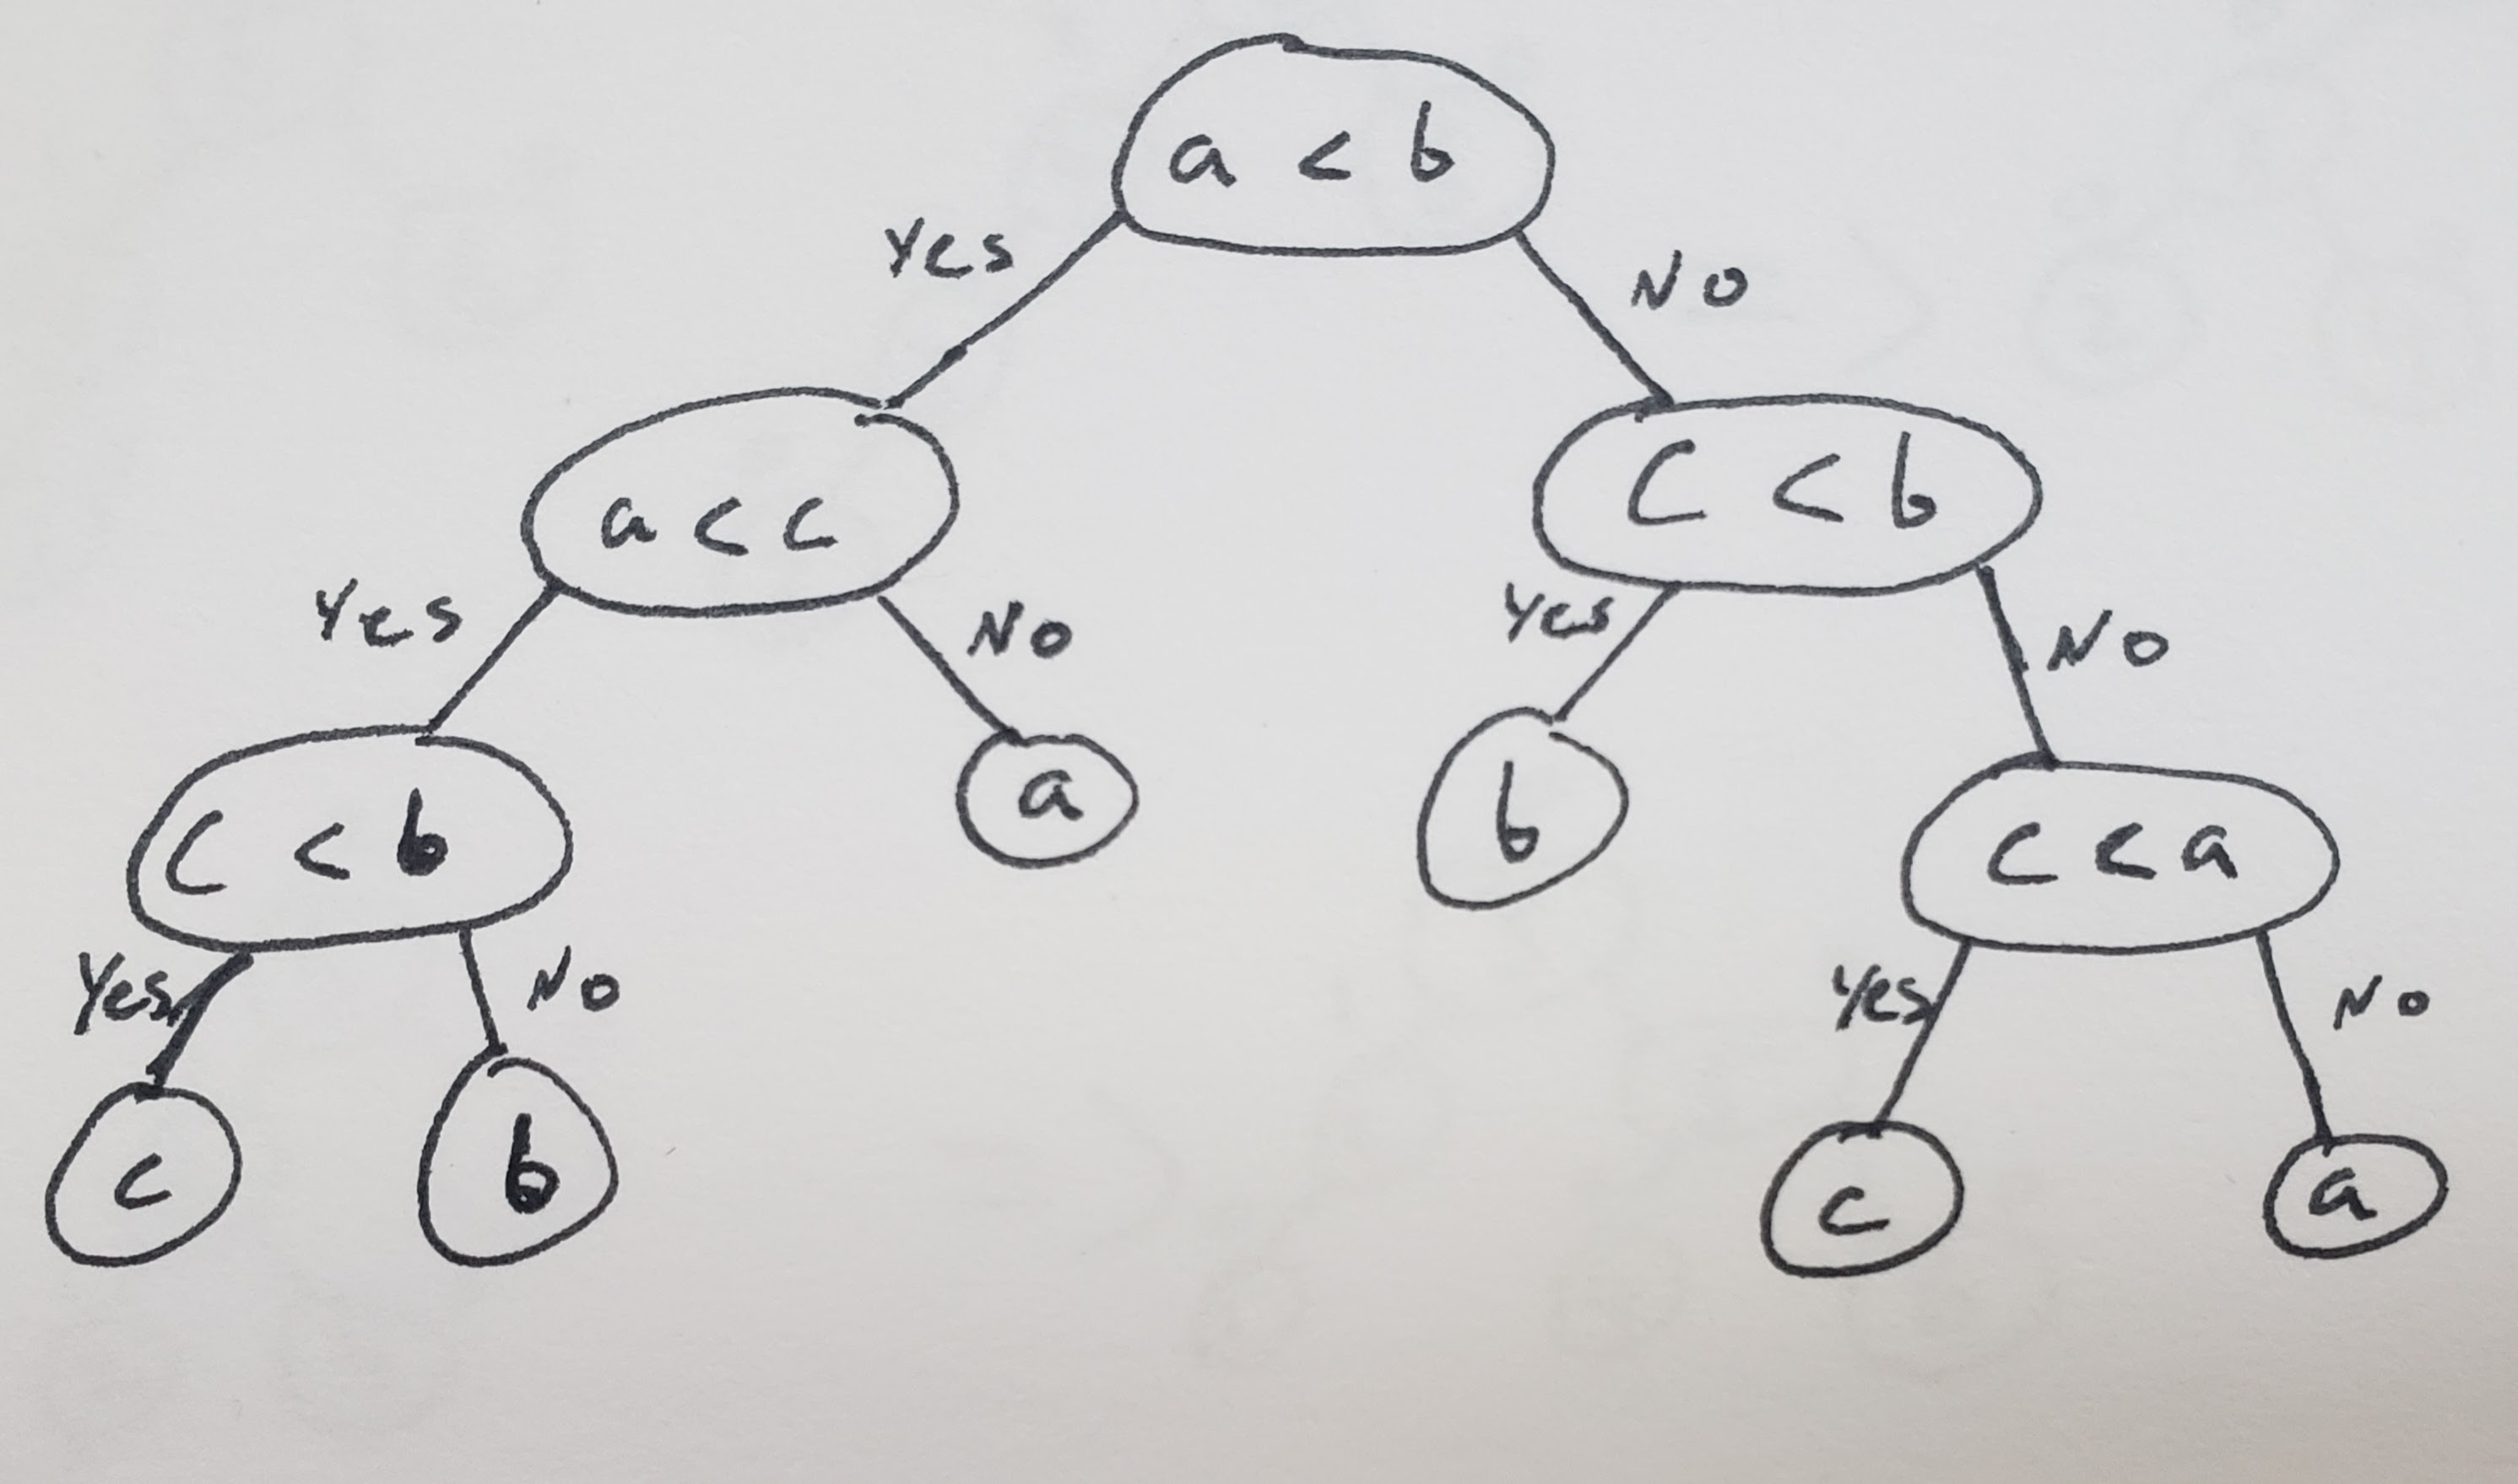 a < b
Yes
No
a < c
C < b
Yes
No
Yes
No
C < b
a
b
c < a
Yes
No
Yes
No
c
b
c
a